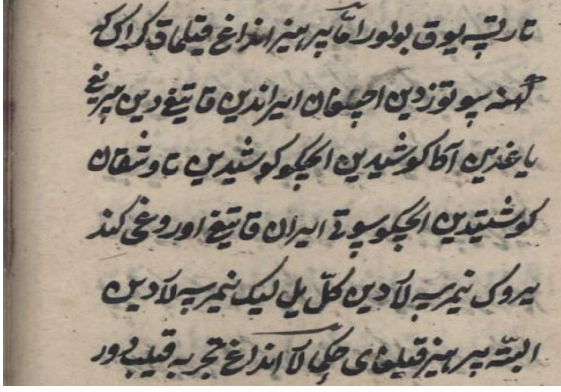 تارتیپ یوق بولور اما پرهیز انداغ قیلماق کراک که
کهنه سو توزدین اچیغان ایراندین قاتیغ دین پریغ
یاغدین آکا کوشیدین ایچکو کوشیدین تاوشقان
کوشتیدین ایچکو سوتی ایران قاتیغ اوروغی کند
یروک نیمرسه لادین کل ییل لیک نیمرسه لادین
البته پرهیز قیلغای حکمالار انداغ تجربه قیلیب دور